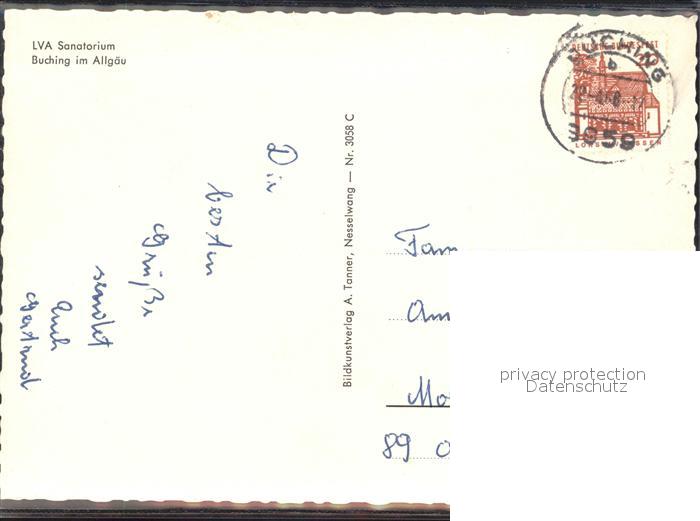 LVA Sanatorium
Buching im Allgäu
Die
besten
Grüße
sendet
Euch
Gertrud
Bildkunstverlag A. Tanner, Nesselwang — Nr. 3058 C
DEUTSCHE BUNDESPOST
BUCHING
b
3959
LORSCH/HESSEN
Fam
Am
Mo
89
privacy protection
Datenschutz